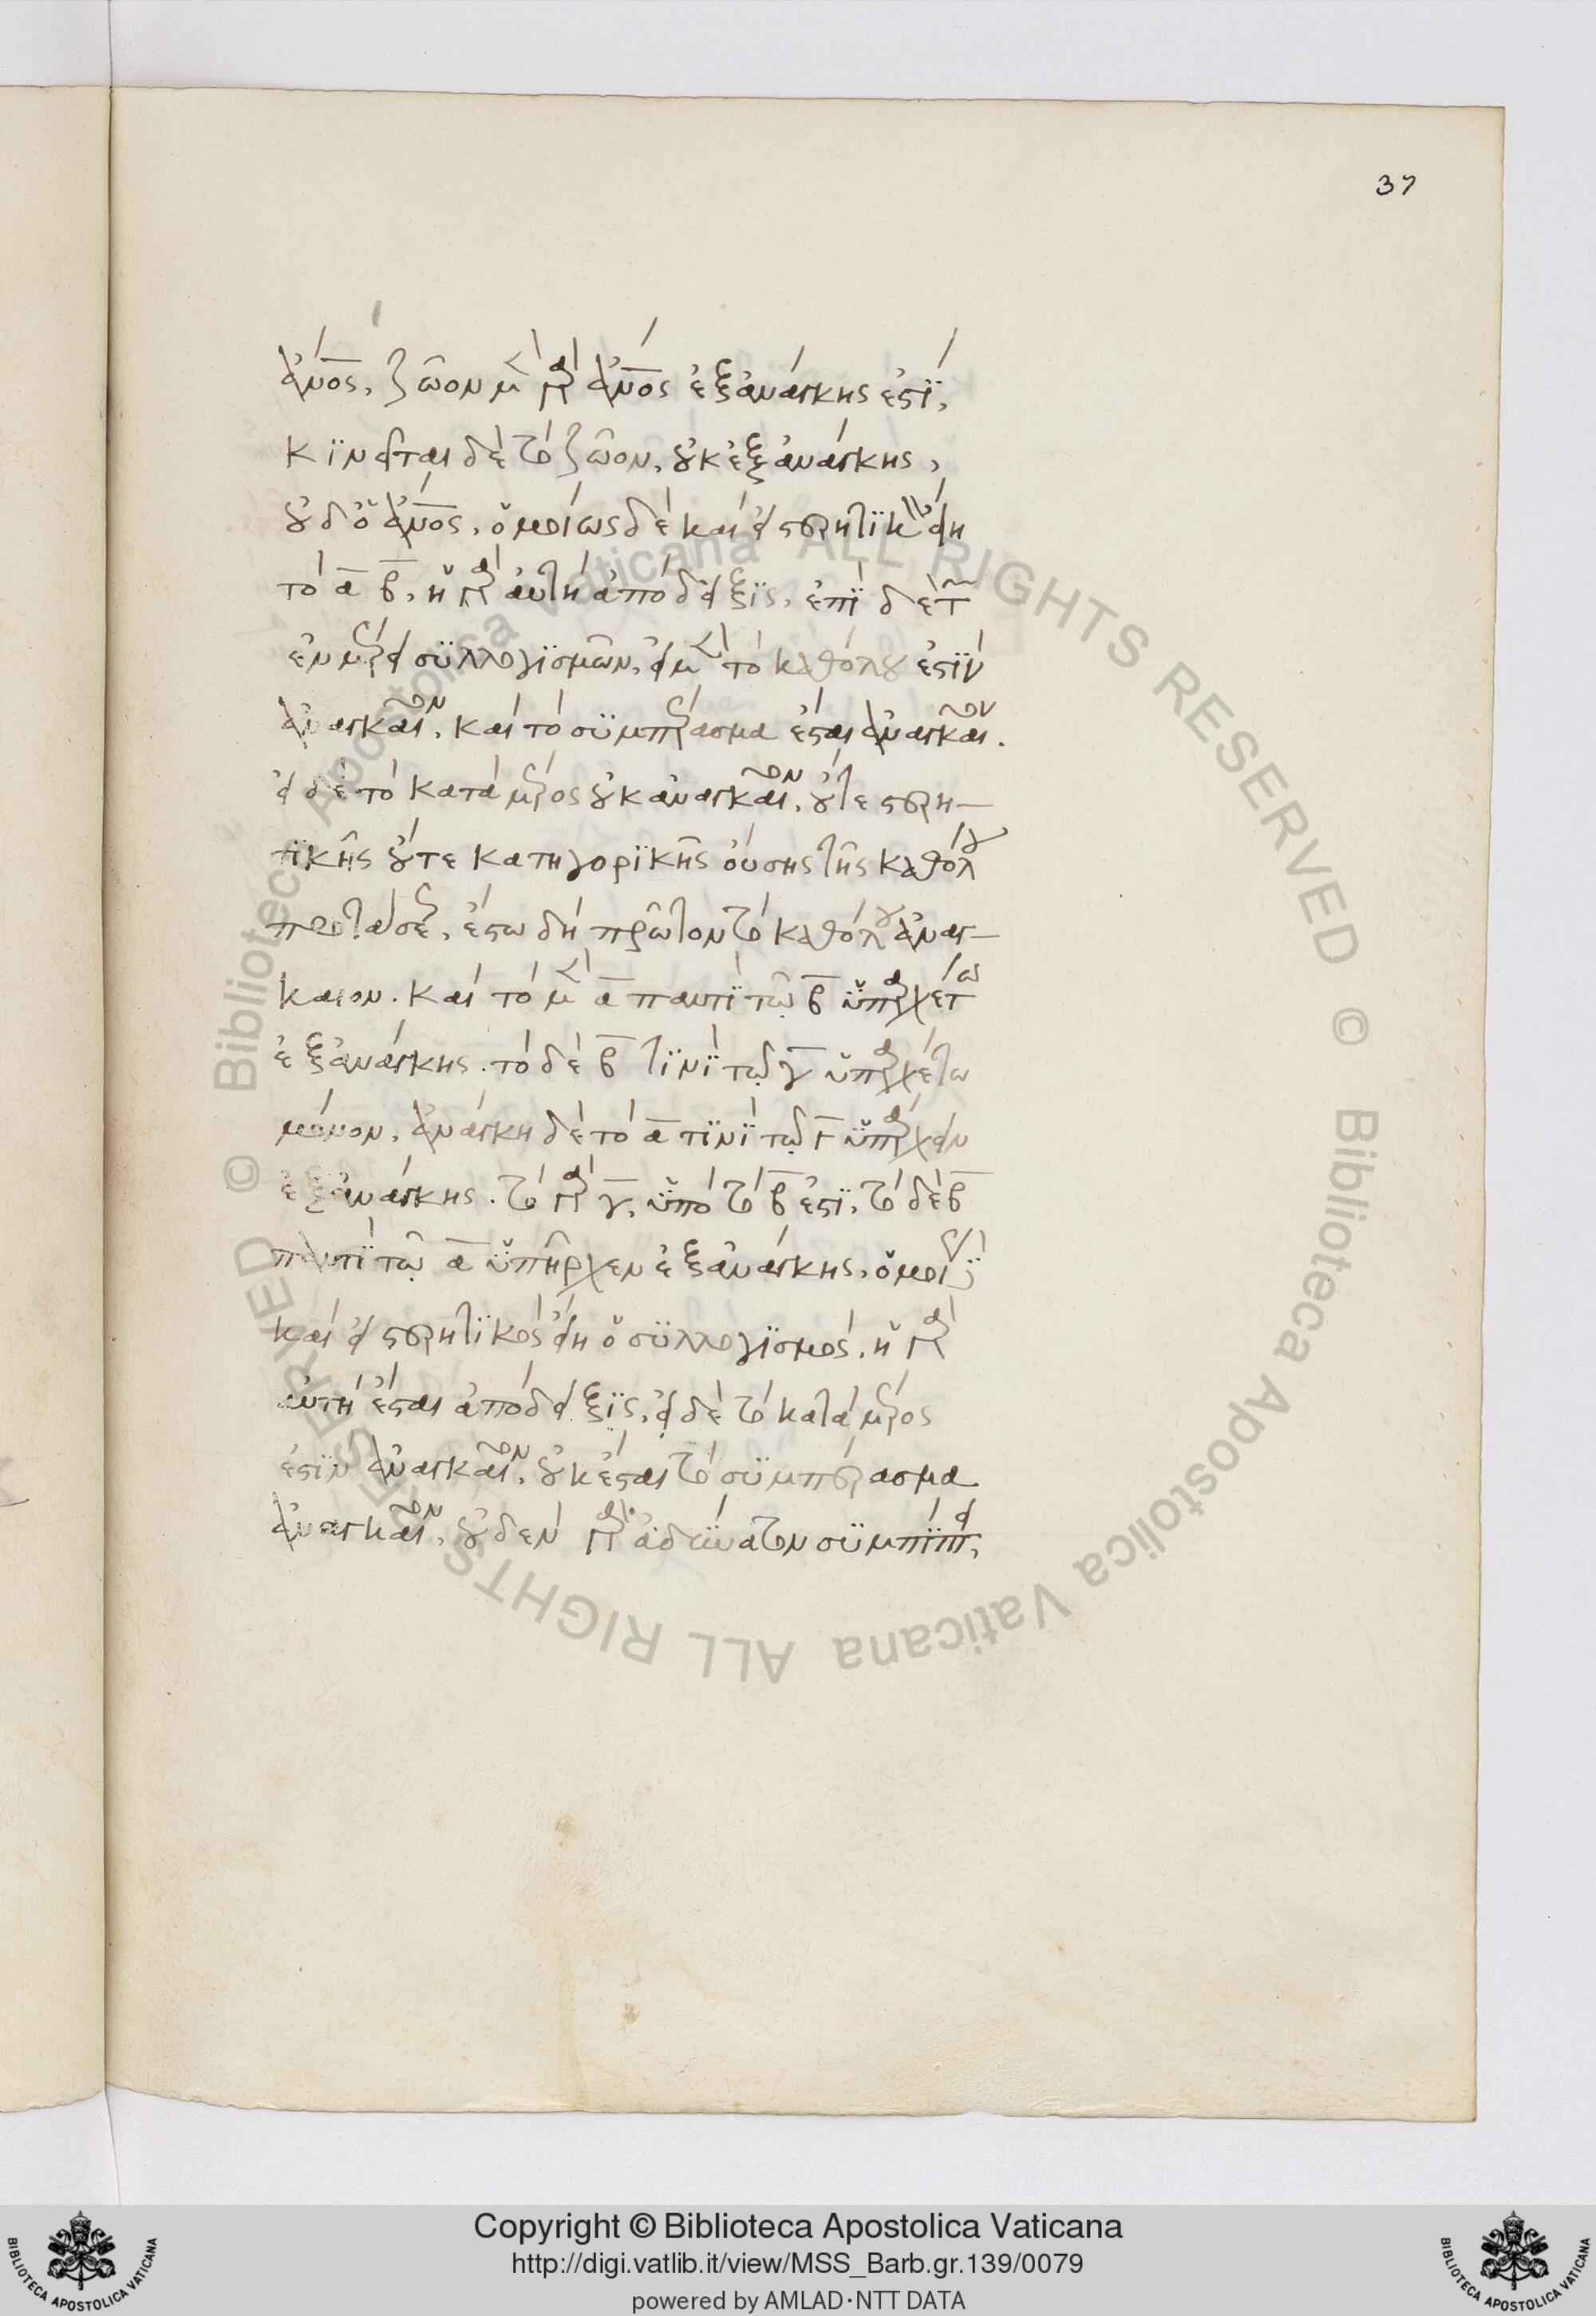 37
ἄνος, ζῶον μὲν γὰρ ἄνος ἐξανάγκης ἐστὶ,
κινεῖται δὲ τὸ ζῶον, οὐκ ἐξανάγκης,
οὐδ ὁ ἄνος, ὁμοίως δὲ καὶ εἰ στερητικὸν εἴη
τὸ α β, ἡ γὰρ αὐτὴ ἀπόδειξις, ἐπὶ δὲ τῶν
ἐν μέρει συλλογισμῶν, εἰ μὲν τὸ καθόλου ἐστὶν
ἀναγκαῖον, καὶ τὸ συμπέρασμα ἔσται ἀναγκαῖον.
εἰ δὲ τὸ κατὰ μέρος οὐκ ἀναγκαῖον, οὔτε στερη-
τικῆς οὔτε κατηγορικῆς οὔσης τῆς καθόλου
προτάσεως, ἔστω δὴ πρῶτον τὸ καθόλου ἀναγ-
καιον. καὶ τὸ μὲν α παντὶ τῷ β ὑπαρχέτω
ἐξανάγκης. τὸ δὲ β τινὶ τῷ γ ὑπαρχέτω
μόνον, ἀνάγκη δὲ τὸ α τινὶ τῷ γ ὑπάρχειν
ἐξανάγκης. τὸ γὰρ γ, ὑπὸ τὸ β ἐστὶ, τὸ δὲ β
παντὶ τῷ α ὑπῆρχεν ἐξανάγκης, ὁμοίως δὲ
καὶ εἰ στερητικὸς εἴη ὁ συλλογισμὸς, ἡ γὰρ
αὐτὴ ἔσται ἀπόδειξις, εἰ δὲ τὸ κατὰ μέρος
ἐστὶν ἀναγκαῖον, οὐκ ἔσται τὸ συμπέρασμα
ἀναγκαῖον, οὐδὲν γὰρ ἀδύνατον συμπίπτει,
Copyright © Biblioteca Apostolica Vaticana
http://digi.vatlib.it/view/MSS_Barb.gr.139/0079
powered by AMLAD·NTT DATA
BIBLIOTECA APOSTOLICA VATICANA
BIBLIOTECA APOSTOLICA VATICANA
© Biblioteca Apostolica Vaticana ALL RIGHTS RESERVED © Biblioteca Apostolica Vaticana ALL RIGHTS RESERVED